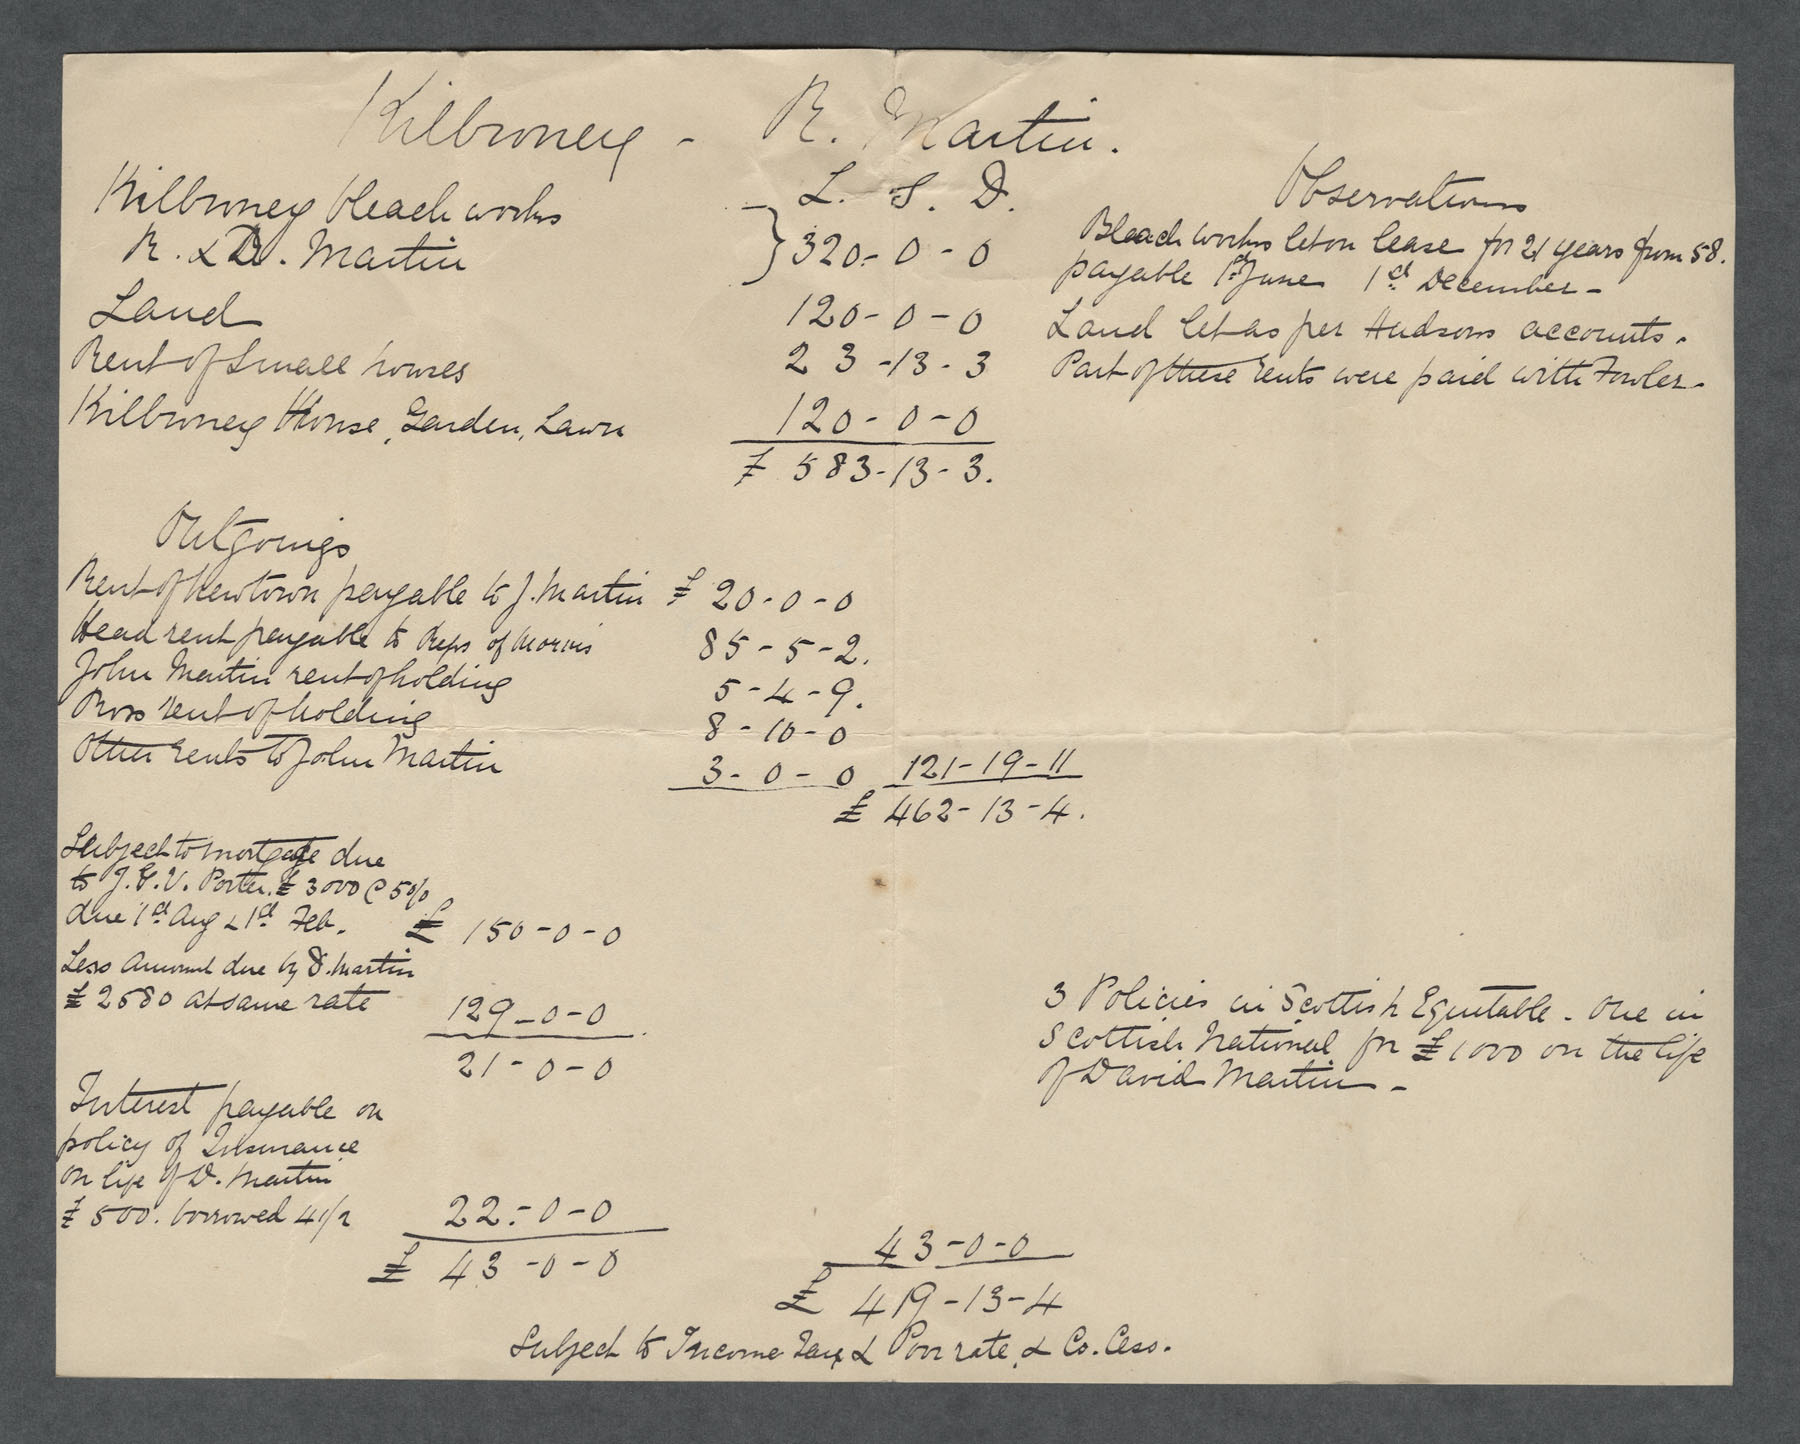 Kilbroney - R. Martin.
L. S. D.
Observations
Kilbroney bleach works
R. & D. Martin } 320 - 0 - 0
Bleach works let on lease for 21 years from 58.
payable 1st June 1st December -
Land 120 - 0 - 0 Land let as per Hudsons accounts.
Rent of Small houses 23 - 13 - 3 Part of these rents were paid with Fowler -
Kilbroney House, Garden, Lawn 120 - 0 - 0
£ 583 - 13 - 3.
Outgoings
Rent of Newtown payable to J. Martin £ 20 - 0 - 0
Head rent payable to Reps of Morris 85 - 5 - 2.
John Martin rent of holding 5 - 4 - 9.
Ross rent of holding 8 - 10 - 0
Other rents to John Martin 3 - 0 - 0 121 - 19 - 11
£ 462 - 13 - 4.
Subject to mortgage due
to J. G. V. Porter. £3000 @ 5 0/0
due 1st Aug & 1st Feb. £ 150 - 0 - 0
Less Amount due by D. Martin
£2580 at same rate 129 - 0 - 0
21 - 0 - 0
3 Policies in Scottish Equitable - One in
Scottish National for £1000 on the life
of David Martin -
Interest payable on
policy of Insurance
on life of D. Martin
£500. borrowed 4 1/2 22 - 0 - 0
£ 43 - 0 - 0
43 - 0 - 0
£ 419 - 13 - 4
Subject to Income Tax & Poor rate, & Co. Cess.